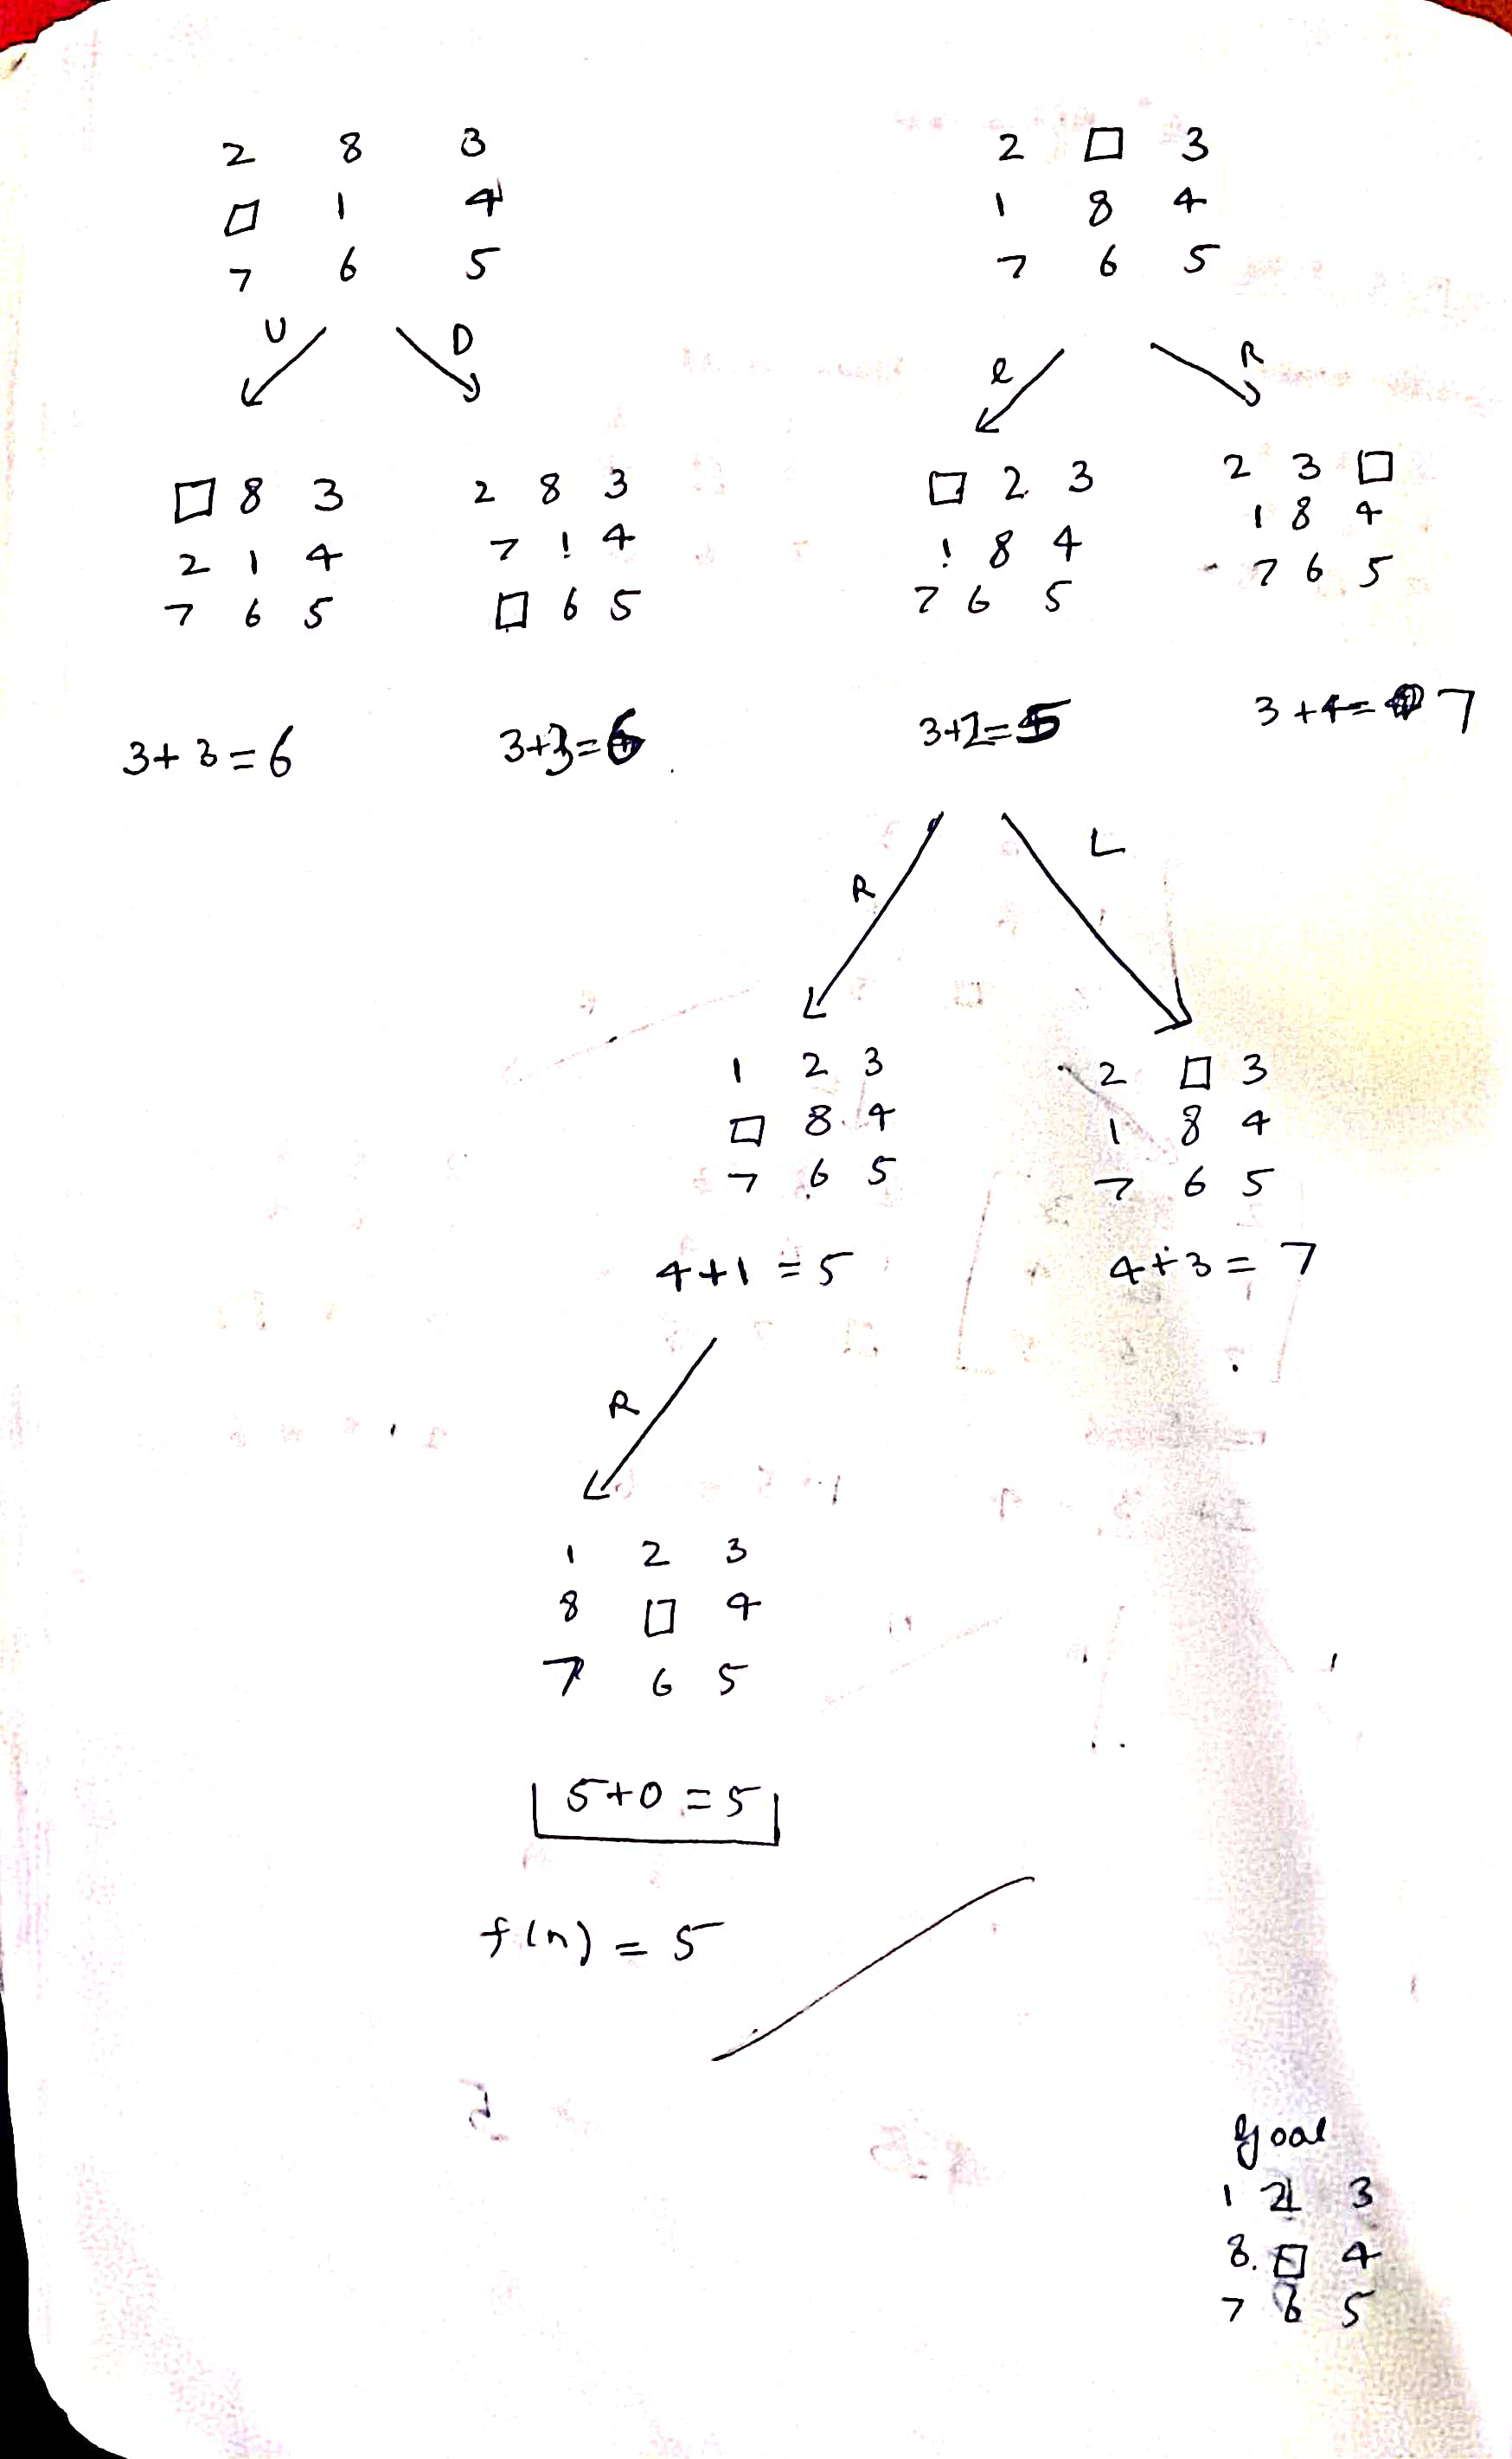 2 8 3
□ 1 4
7 6 5
U D
□ 8 3
2 1 4
7 6 5
3+3=6
2 8 3
7 1 4
□ 6 5
3+3=6
2 □ 3
1 8 4
7 6 5
l R
□ 2 3
1 8 4
7 6 5
3+2=5
2 3 □
1 8 4
7 6 5
3+4=7
R L
1 2 3
□ 8 4
7 6 5
4+1=5
2 □ 3
1 8 4
7 6 5
4+3=7
R
1 2 3
8 □ 4
7 6 5
5+0=5
f(n)=5
Goal
1 2 3
8. □ 4
7 6 5